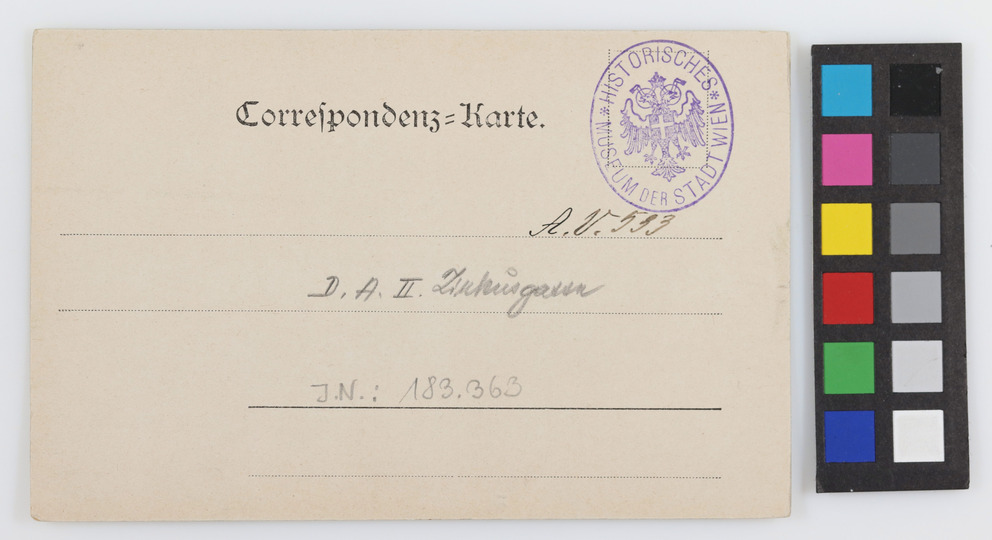 Correspondenz-Karte.
* HISTORISCHES * MUSEUM DER STADT WIEN
A.V. 593
D. A. II. Zirkusgasse
J.N.: 183.363